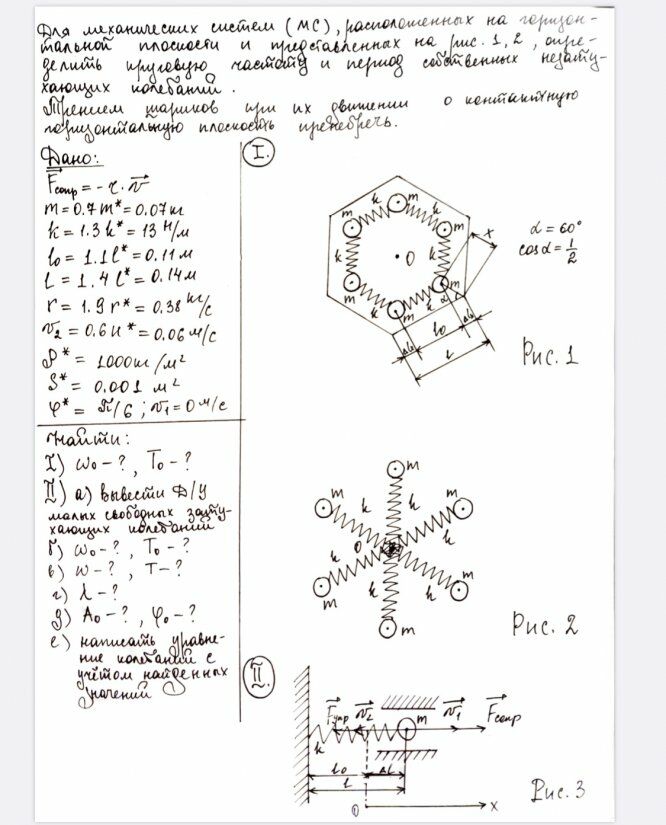 Для механических систем (МС), расположенных на горизон-
тальной плоскости и представленных на рис. 1, 2, опре-
делить круговую частоту и период собственных незату-
хающих колебаний.
Трением шариков при их движении о контактную
горизонтальную плоскость пренебречь.
Дано:
Fсопр = - r · v
m = 0.7 m* = 0.07 кг
k = 1.3 k* = 13 Н/м
l0 = 1.1 l* = 0.11 м
l = 1.4 l* = 0.14 м
r = 1.9 r* = 0.38 кг/с
v2 = 0.6 u* = 0.06 м/с
ρ* = 1000 кг/м²
S* = 0.001 м²
φ* = π/6; v1 = 0 м/с
Найти:
I) ω0 - ?, T0 - ?
II) а) вывести Д/У
малых свободных зату-
хающих колебаний
б) ω0 - ?, T0 - ?
в) ω - ?, T - ?
г) λ - ?
д) A0 - ?, φ0 - ?
е) написать уравне-
ние колебаний с
учётом найденных
значений
I.
m
m
m
m
m
m
k
k
k
k
k
k
O
α
x
Δl0
l0
Δl0
l
α = 60°
cos α = 1/2
Рис. 1
m
m
m
m
m
m
k
k
k
k
k
k
O
Рис. 2
II.
Fупр
v2
m
v1
Fсопр
k
l0
Δl
l
0
x
Рис. 3